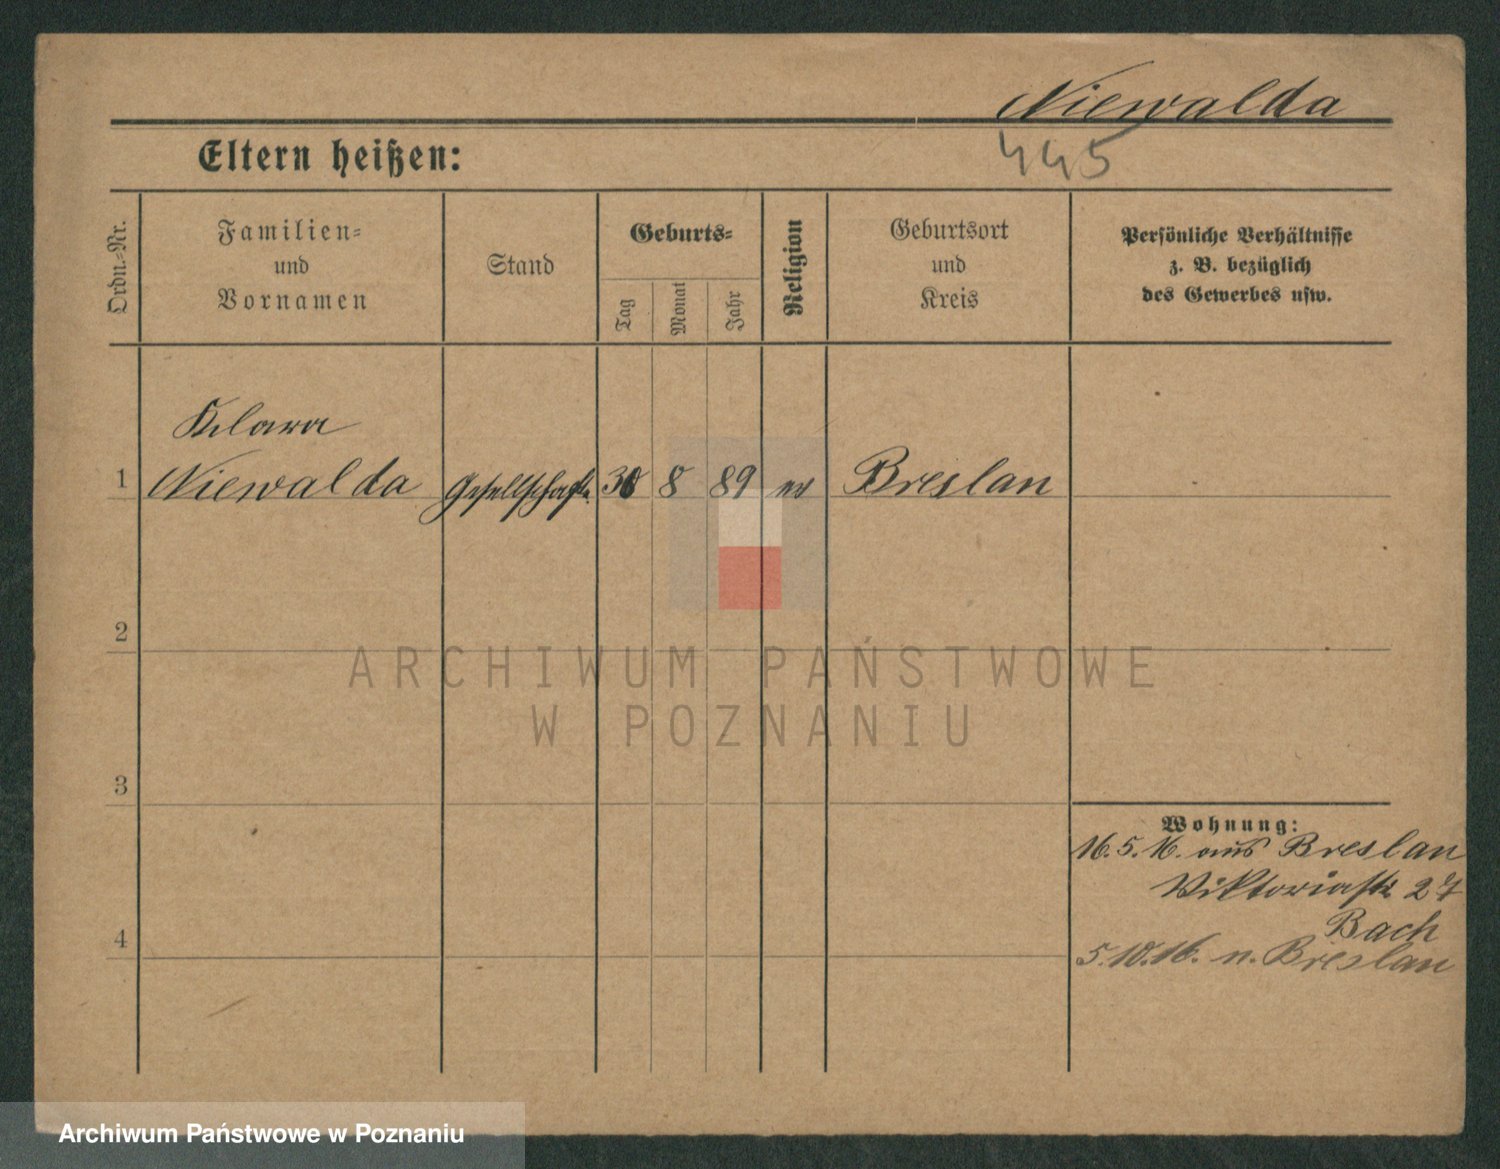 Niewalda
445
Eltern heißen:
Ordn.-Nr.
Familien-
und
Vornamen
Stand
Geburts-
Tag
Monat
Jahr
Religion
Geburtsort
und
Kreis
Persönliche Verhältnisse
z. B. bezüglich
des Gewerbes usw.
Klara
1 Niewalda 30 8 89 Breslau
2
3
4
Wohnung:
16.5.16. aus Breslau
Viktoriastr 27
Bach
5.10.16. n. Breslau
ARCHIWUM PAŃSTWOWE
W POZNANIU
Archiwum Państwowe w Poznaniu